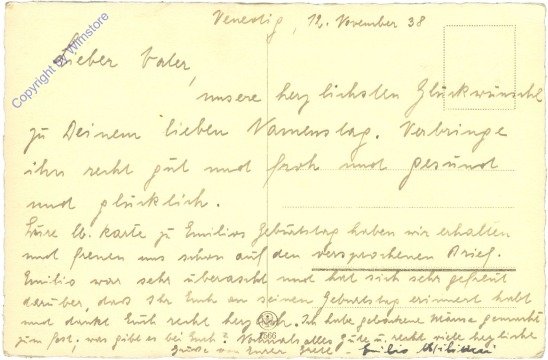 Venedig, 12. November 38
Lieber Vater,
unsere herzlichsten Glückwünsche
zu Deinem lieben Namenstag. Verbringe
ihn recht gut und froh und gesund
und glücklich.
Eure lb. Karte zu Emilios Geburtstag haben wir erhalten
und freuen uns schon auf den versprochenen Brief.
Emilio war sehr überascht und hat sich sehr gefreut
darüber, daß Ihr Euch an seinen Geburtstag erinnert habt
und dankt Euch recht herzlich. Ich habe gebackene Mäuse gemacht
zum Fest. was gibt es bei Euch? Nochmals alles gute u. recht viele herzliche
Grüße von Eurer - Emilio
566
Copyright by Wimstore